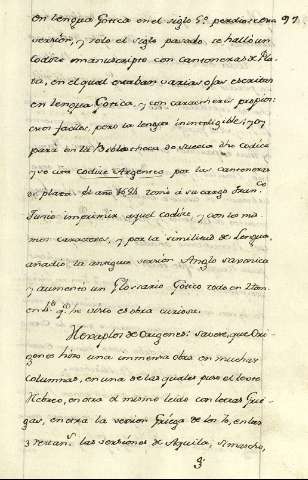 en lengua Gótica en el siglo 5º perdiose esa 97
versión, y solo el siglo pasado se halló un
codice manuscripto con cantoneras de Pla-
ta, en el qual estaban varias ojas escritas
en lengua Gótica, y con caracteres propios
eran faciles, pero la lengua ininteligible; y oy
para en la Bibliotheca de Suecia dho codice
y se cita codice Argenteo por las cantoneras
de plata el año 1684 tomó a su cargo Fran.co
Junio imprimir aquel codice, y con los mis-
mos caracteres, y por la similitud de Lengua
añadio la antigua version Anglo saxonica
y aumento un Glossario Gótico todo en 2 tom.
en 4º q.e he visto es obra curiosa.
Hexaplos de Origenes: savese, que Ori-
genes hizo una immensa obra en muchas
columnas, en una de las quales puso el texto
Hebreo, en otra el mismo leido con letras Grie-
gas, en otra la version Griega de los 70, en las
3 restan.s las versiones de Aquila, Simacho,